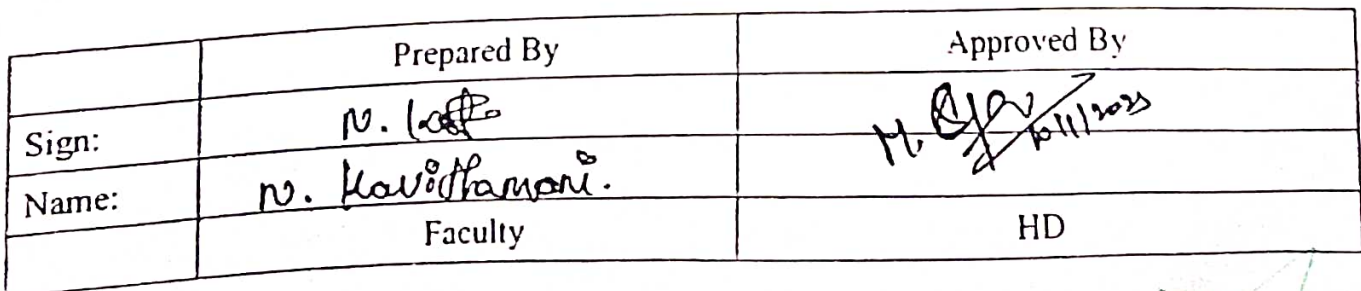 Prepared By Approved By
Sign: N.
Name: N. Kavithamani.
Faculty HD